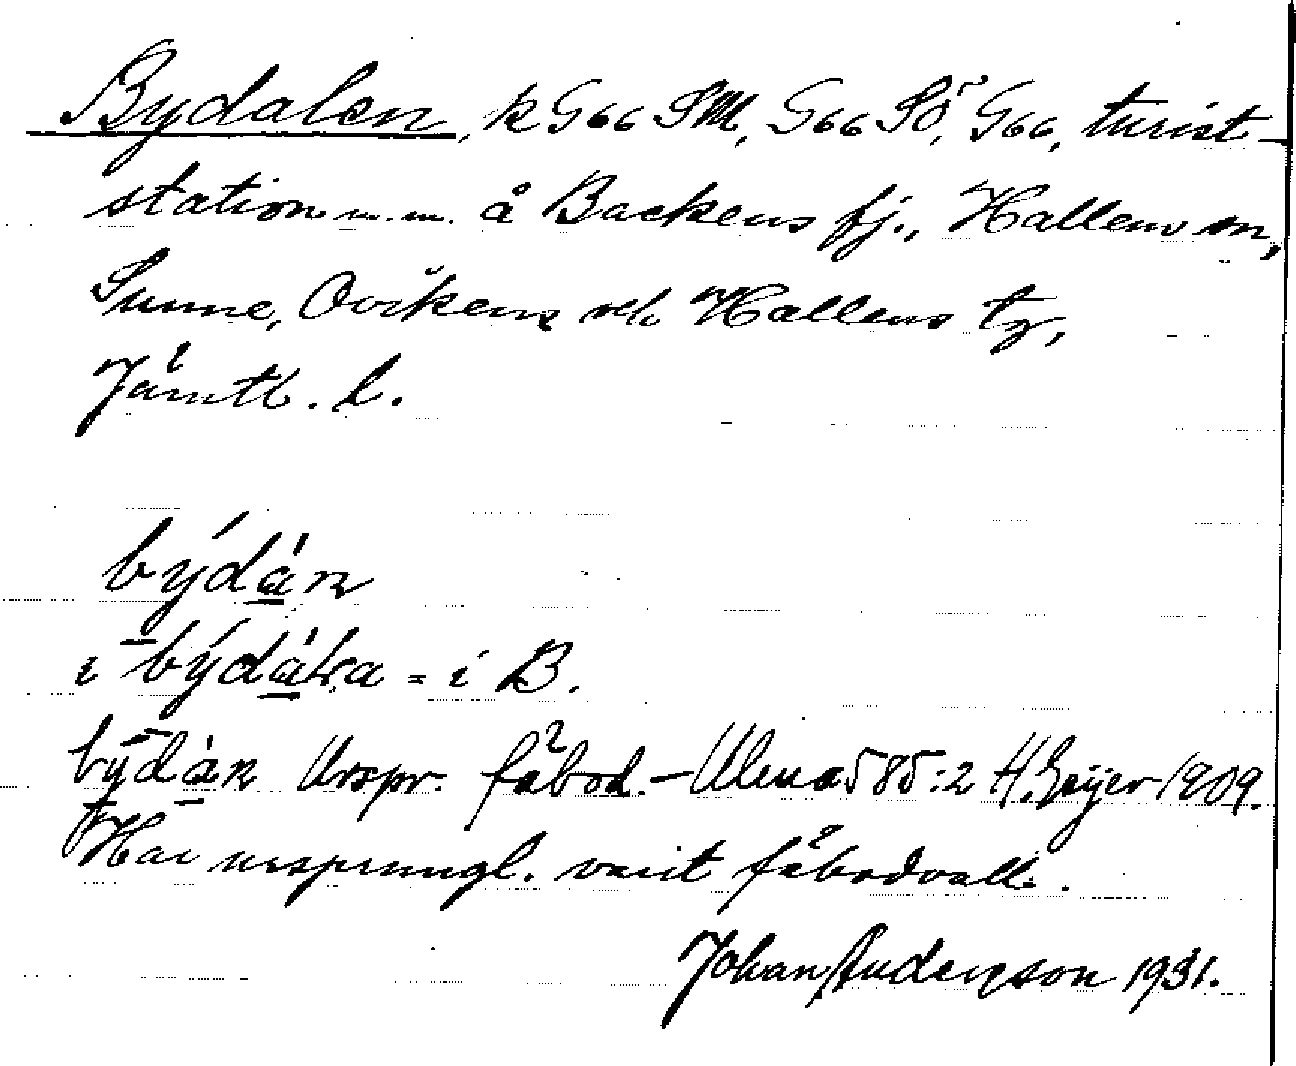 Bydalen, k G66 SM, G66 SÖ, G66, turist-
station m.m. å Backens fj., Hallens sn,
Sunne, Ovikens o/h Hallens tg,
Jämtl. l.
býdán
i býdáƚƚa = i B.
býdán Urspr. fäbod. – Ulma 585:2 H. Geijer 1909.
Har ursprungl. varit fäbodvall.
Johan Anderzson 1931.